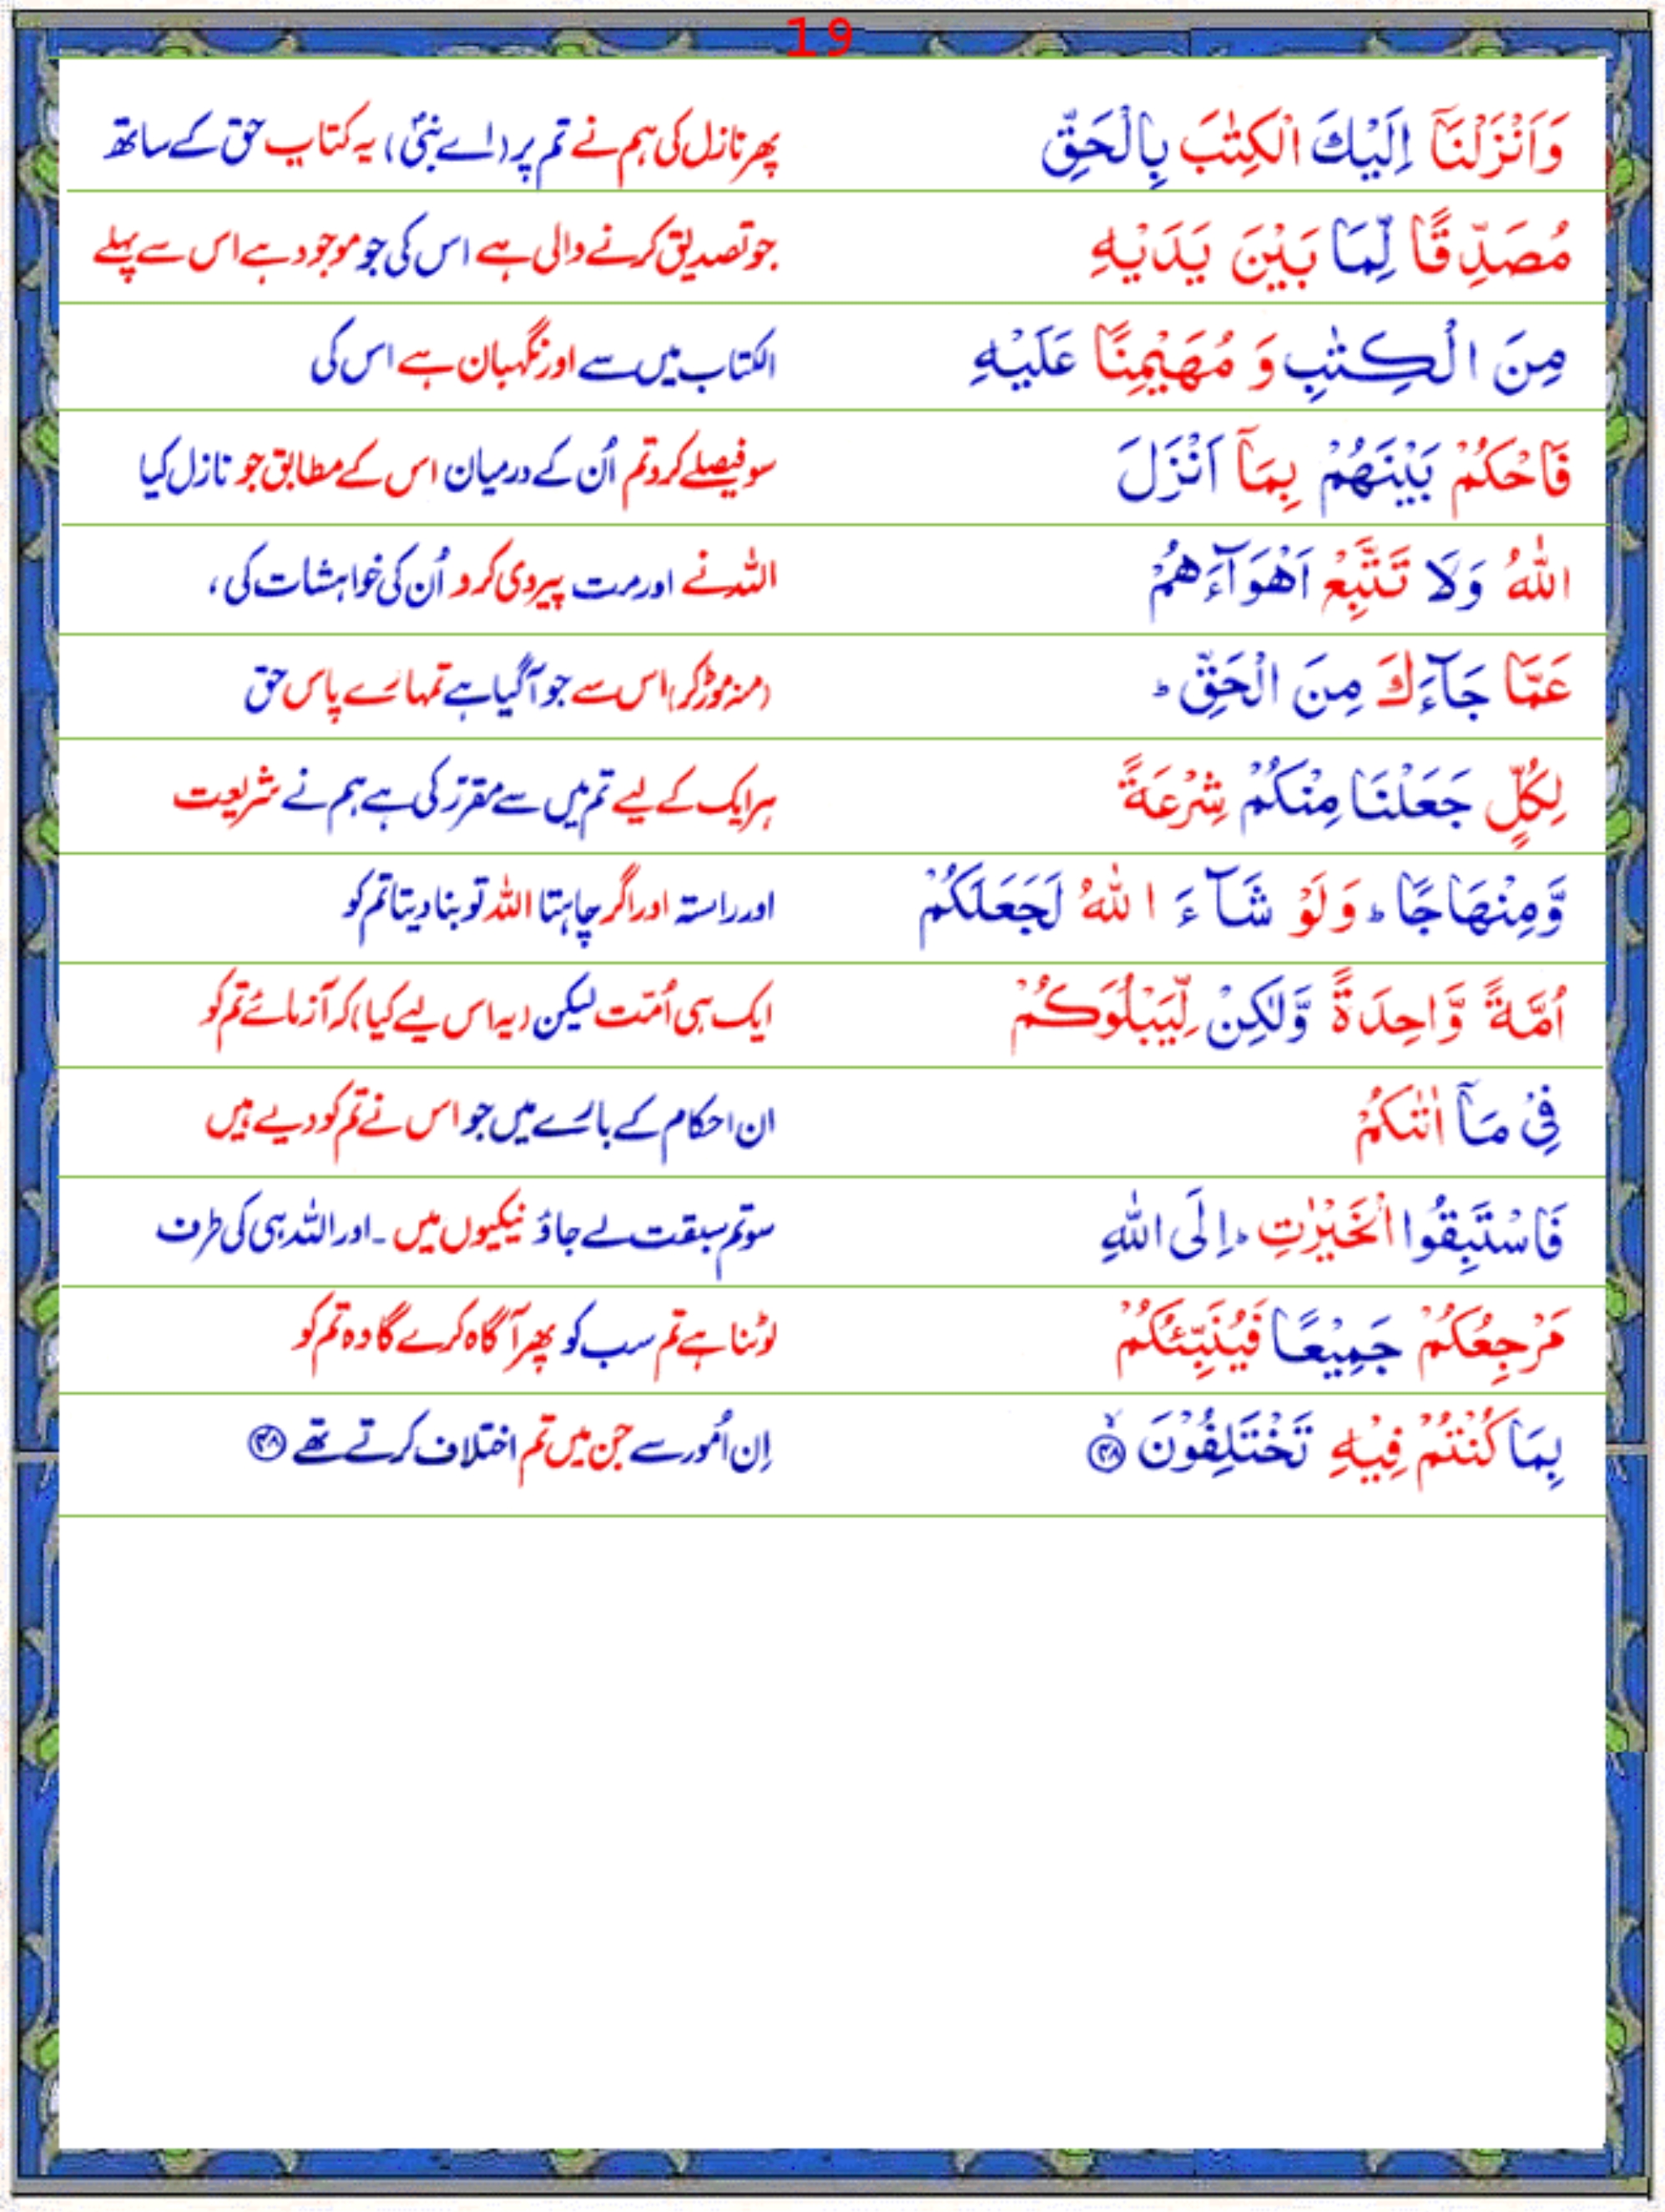 19
وَاَنْزَلْنَآ اِلَيْكَ الْكِتٰبَ بِالْحَقِّ پھر نازل کی ہم نے تم پر (اے نبیؐ) یہ کتاب حق کے ساتھ
مُصَدِّقًا لِّمَا بَيْنَ يَدَيْهِ جو تصدیق کرنے والی ہے اس کی جو موجود ہے اس سے پہلے
مِنَ الْكِتٰبِ وَ مُهَيْمِنًا عَلَيْهِ الکتاب میں سے اور نگہبان ہے اس کی
فَاحْكُمْ بَيْنَهُمْ بِمَآ اَنْزَلَ سو فیصلے کرو تم اُن کے درمیان اس کے مطابق جو نازل کیا
اللّٰهُ وَلَا تَتَّبِعْ اَهْوَآءَهُمْ اللہ نے اور مت پیروی کرو اُن کی خواہشات کی ،
عَمَّا جَآءَكَ مِنَ الْحَقِّ ؕ (منہ موڑ کر) اس سے جو آ گیا ہے تمہارے پاس حق
لِكُلٍّ جَعَلْنَا مِنْكُمْ شِرْعَةً ہر ایک کے لیے تم میں سے مقرّر کی ہے ہم نے شریعت
وَّمِنْهَاجًا ؕ وَلَوْ شَآءَ اللّٰهُ لَجَعَلَكُمْ اور راستہ اور اگر چاہتا اللہ تو بنا دیتا تم کو
اُمَّةً وَّاحِدَةً وَّلٰكِنْ لِّيَبْلُوَكُمْ ایک ہی اُمّت لیکن (یہ اس لیے کیا) کہ آزمائے تم کو
فِيْ مَآ اٰتٰىكُمْ ان احکام کے بارے میں جو اس نے تم کو دیے ہیں
فَاسْتَبِقُوا الْخَيْرٰتِ ؕ اِلَى اللّٰهِ سو تم سبقت لے جاؤ نیکیوں میں ۔ اور اللہ ہی کی طرف
مَرْجِعُكُمْ جَمِيْعًا فَيُنَبِّئُكُمْ لوٹنا ہے تم سب کو پھر آگاہ کرے گا وہ تم کو
بِمَا كُنْتُمْ فِيْهِ تَخْتَلِفُوْنَ ۙ ﴿۴۸﴾ اِن اُمور سے جن میں تم اختلاف کرتے تھے ﴿۴۸﴾